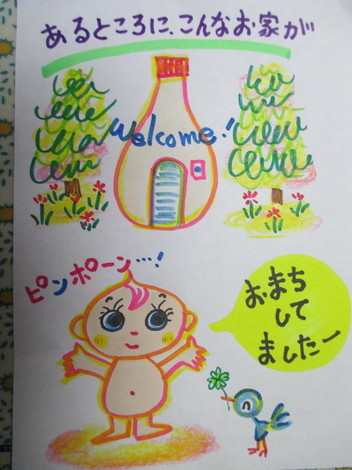 あるところに、こんなお家が
Welcome!
ピンポーン…!
おまち
して
ましたー